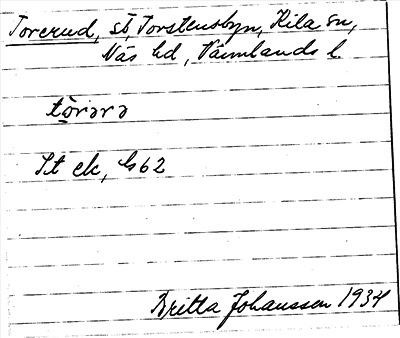 Torerud, st Torstensbyn, Kila sn,
Näs hd, Värmlands l.
tòrərə
St ek, G62
Britta Johansson 1934